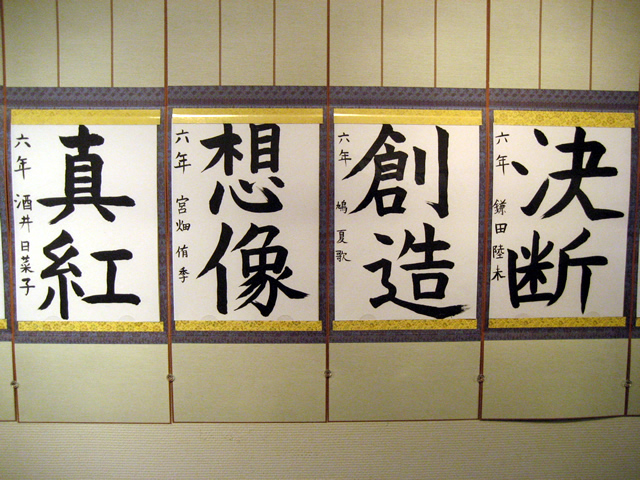 決断
六年 鎌田陸未
創造
六年 鳩夏歌
想像
六年 宮畑侑季
真紅
六年 酒井日菜子